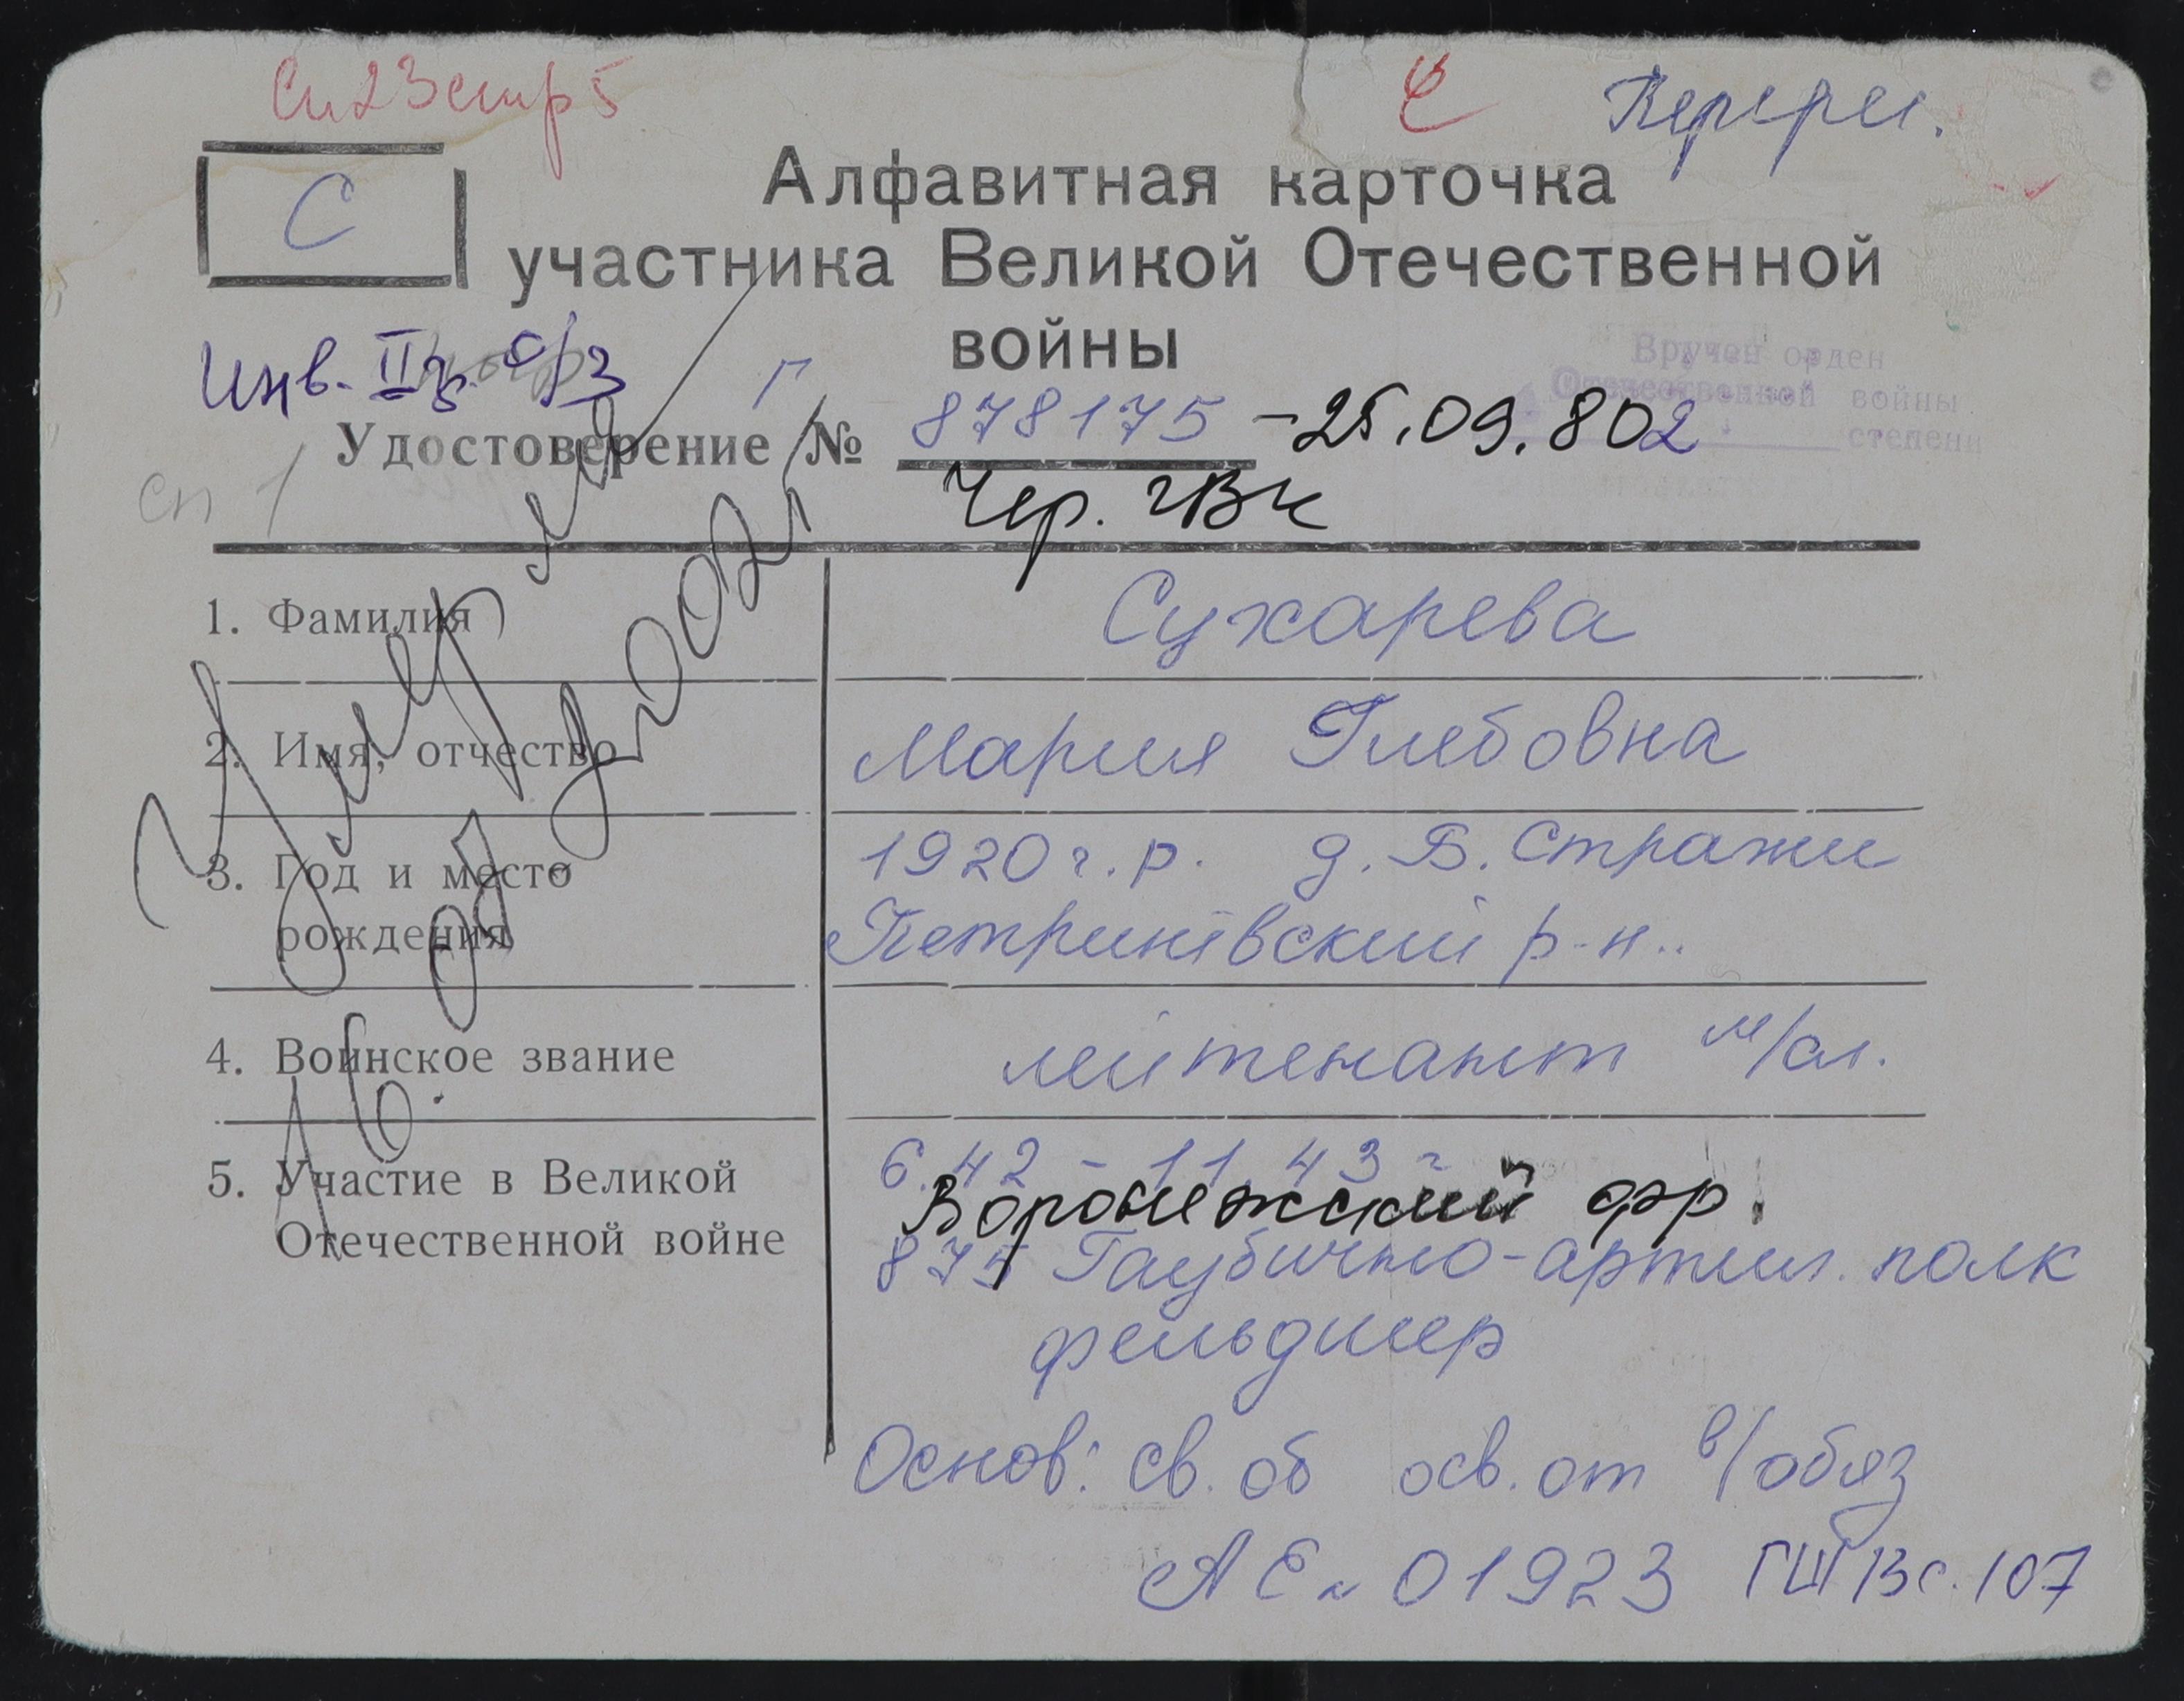 Сп 23 стр 5
Перерег.
С
Алфавитная карточка
участника Великой Отечественной
войны
Инв. II гр. с/з
Вручен орден
Отечественной войны
степени
Удостоверение № Г 878175 - 25.09.80г
сп 1
Чер. ГВК
Умерла
1. Фамилия Сухарева
2. Имя, отчество Мария Глебовна
3. Год и место рождения 1920 г.р. д. Б. Стражи
Петриневский р-н.
4. Воинское звание лейтенант м/сл.
5. Участие в Великой Отечественной войне 6.42 - 11.43 г
Воронежский фр.
875 Гаубично-артил. полк
фельдшер
Основ: св. об осв. от в/обяз
АЕ № 01923 ГШ 13 с. 107